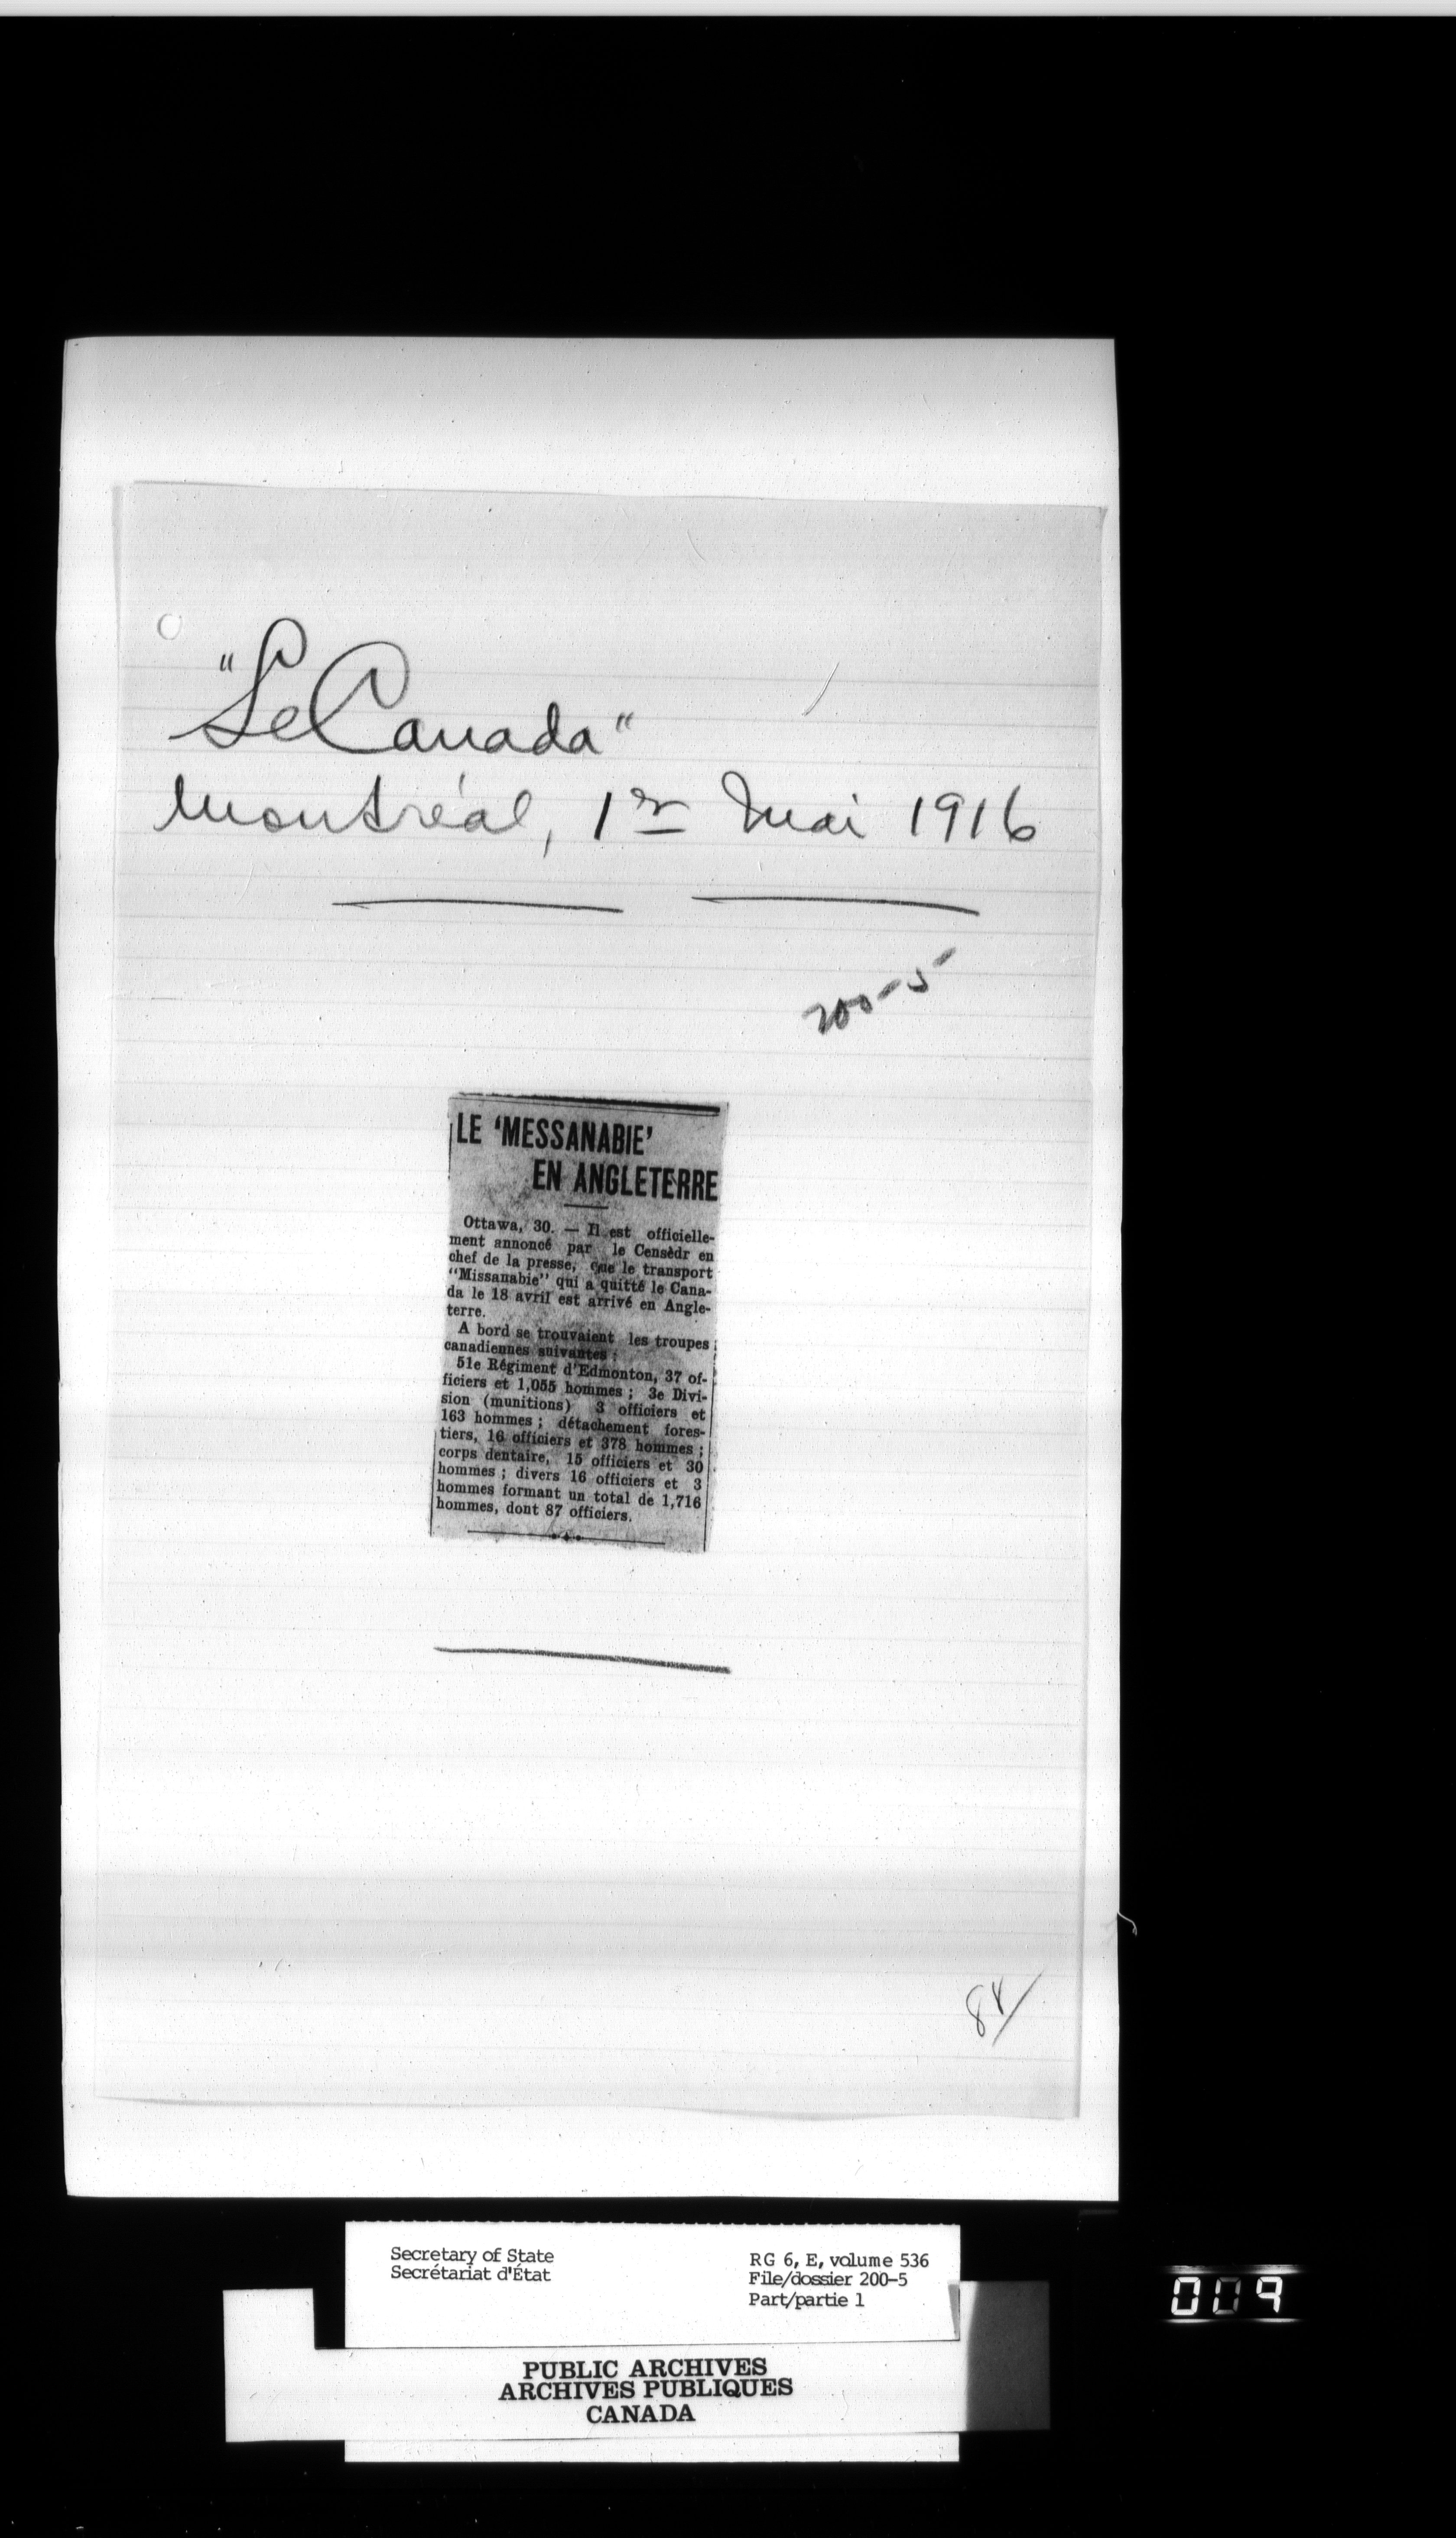 "Le Canada"
Montréal, 1er Mai 1916
200-5
LE 'MESSANABIE'
EN ANGLETERRE
Ottawa, 30. — Il est officielle-
ment annoncé par le Censèdr en
chef de la presse, que le transport
"Missanabie" qui a quitté le Cana-
da le 18 avril est arrivé en Angle-
terre.
A bord se trouvaient les troupes
canadiennes suivantes :
51e Régiment d'Edmonton, 37 of-
ficiers et 1,055 hommes ; 3e Divi-
sion (munitions) 3 officiers et
163 hommes ; détachement fores-
tiers, 16 officiers et 378 hommes ;
corps dentaire, 15 officiers et 30
hommes ; divers 16 officiers et 3
hommes formant un total de 1,716
hommes, dont 87 officiers.
84/
Secretary of State
Secrétariat d'État
RG 6, E, volume 536
File/dossier 200-5
Part/partie 1
PUBLIC ARCHIVES
ARCHIVES PUBLIQUES
CANADA
009